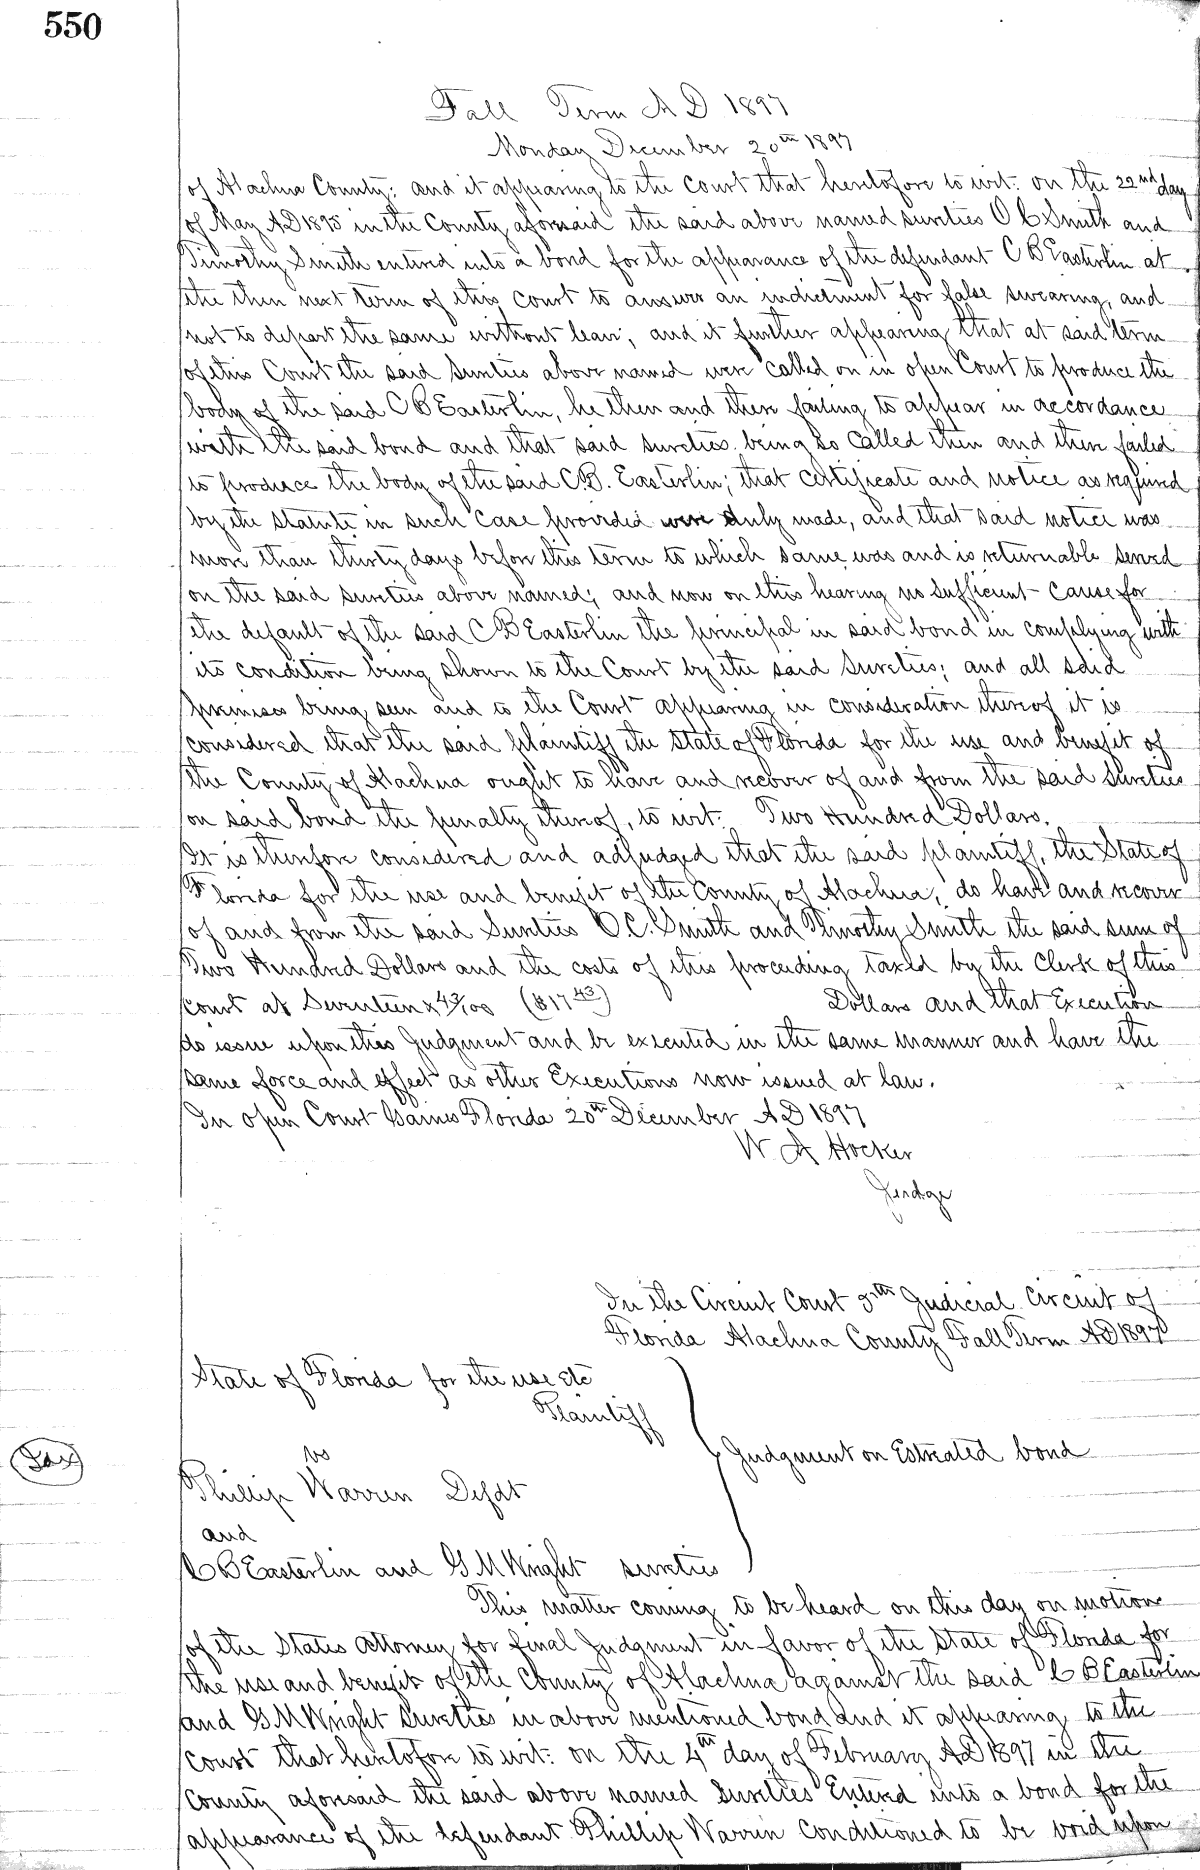 550
Fall Term A D 1897
Monday December 20th 1897
of Alachua County; and it appearing to the court that heretofore to wit: on the 22nd day
of May AD 1895 in the County aforesaid the said above named sureties O C Smith and
Timothy Smith entered into a bond for the appearance of the defendant C B Easterlin at
the then next term of this court to answer an indictment for false swearing, and
not to depart the same without leave; and it further appearing that at said term
of this Court the said sureties above named were called on in open Court to produce the
body of the said C B Easterlin, he then and there failing to appear in accordance
with the said bond and that said sureties being so called then and there failed
to produce the body of the said C.B. Easterlin; that certificate and notice as required
by the statute in such case provided were duly made, and that said notice was
more than thirty days before this term to which same was and is returnable served
on the said sureties above named; and now on this hearing no sufficient cause for
the default of the said C B Easterlin the principal in said bond in complying with
its condition being shown to the Court by the said sureties; and all said
premises being seen and to the Court appearing in consideration thereof it is
considered that the said plaintiff the State of Florida for the use and benefit of
the County of Alachua ought to have and recover of and from the said sureties
on said bond the penalty thereof, to wit: Two Hundred Dollars.
It is therefore considered and adjudged that the said plaintiff, the State of
Florida for the use and benefit of the County of Alachua, do have and recover
of and from the said Sureties O.C. Smith and Timothy Smith the said sum of
Two Hundred Dollars and the costs of this proceeding taxed by the Clerk of this
court at Seventeen & 43/100 ($17 43) Dollars and that Execution
do issue upon this Judgment and be executed in the same manner and have the
same force and effect as other Executions now issued at law.
In open Court Gaines Florida 20th December AD 1897
W A Hocker
Judge
In the Circuit Court 5th Judicial Circuit of
Florida Alachua County Fall Term AD 1897
State of Florida for the use etc
Plaintiff
vs
Judgment on Estreated bond
Phillip Warren Defdt
and
C B Easterlin and G M Wright sureties
This matter coming to be heard on this day on motion
of the States Attorney for final Judgment in favor of the State of Florida for
the use and benefit of the County of Alachua against the said C B Easterlin
and G M Wright Sureties in above mentioned bond and it appearing to the
court that heretofore to wit: on the 4th day of February AD 1897 in the
County aforesaid the said above named sureties Entered into a bond for the
appearance of the defendant Phillip Warren conditioned to be void upon